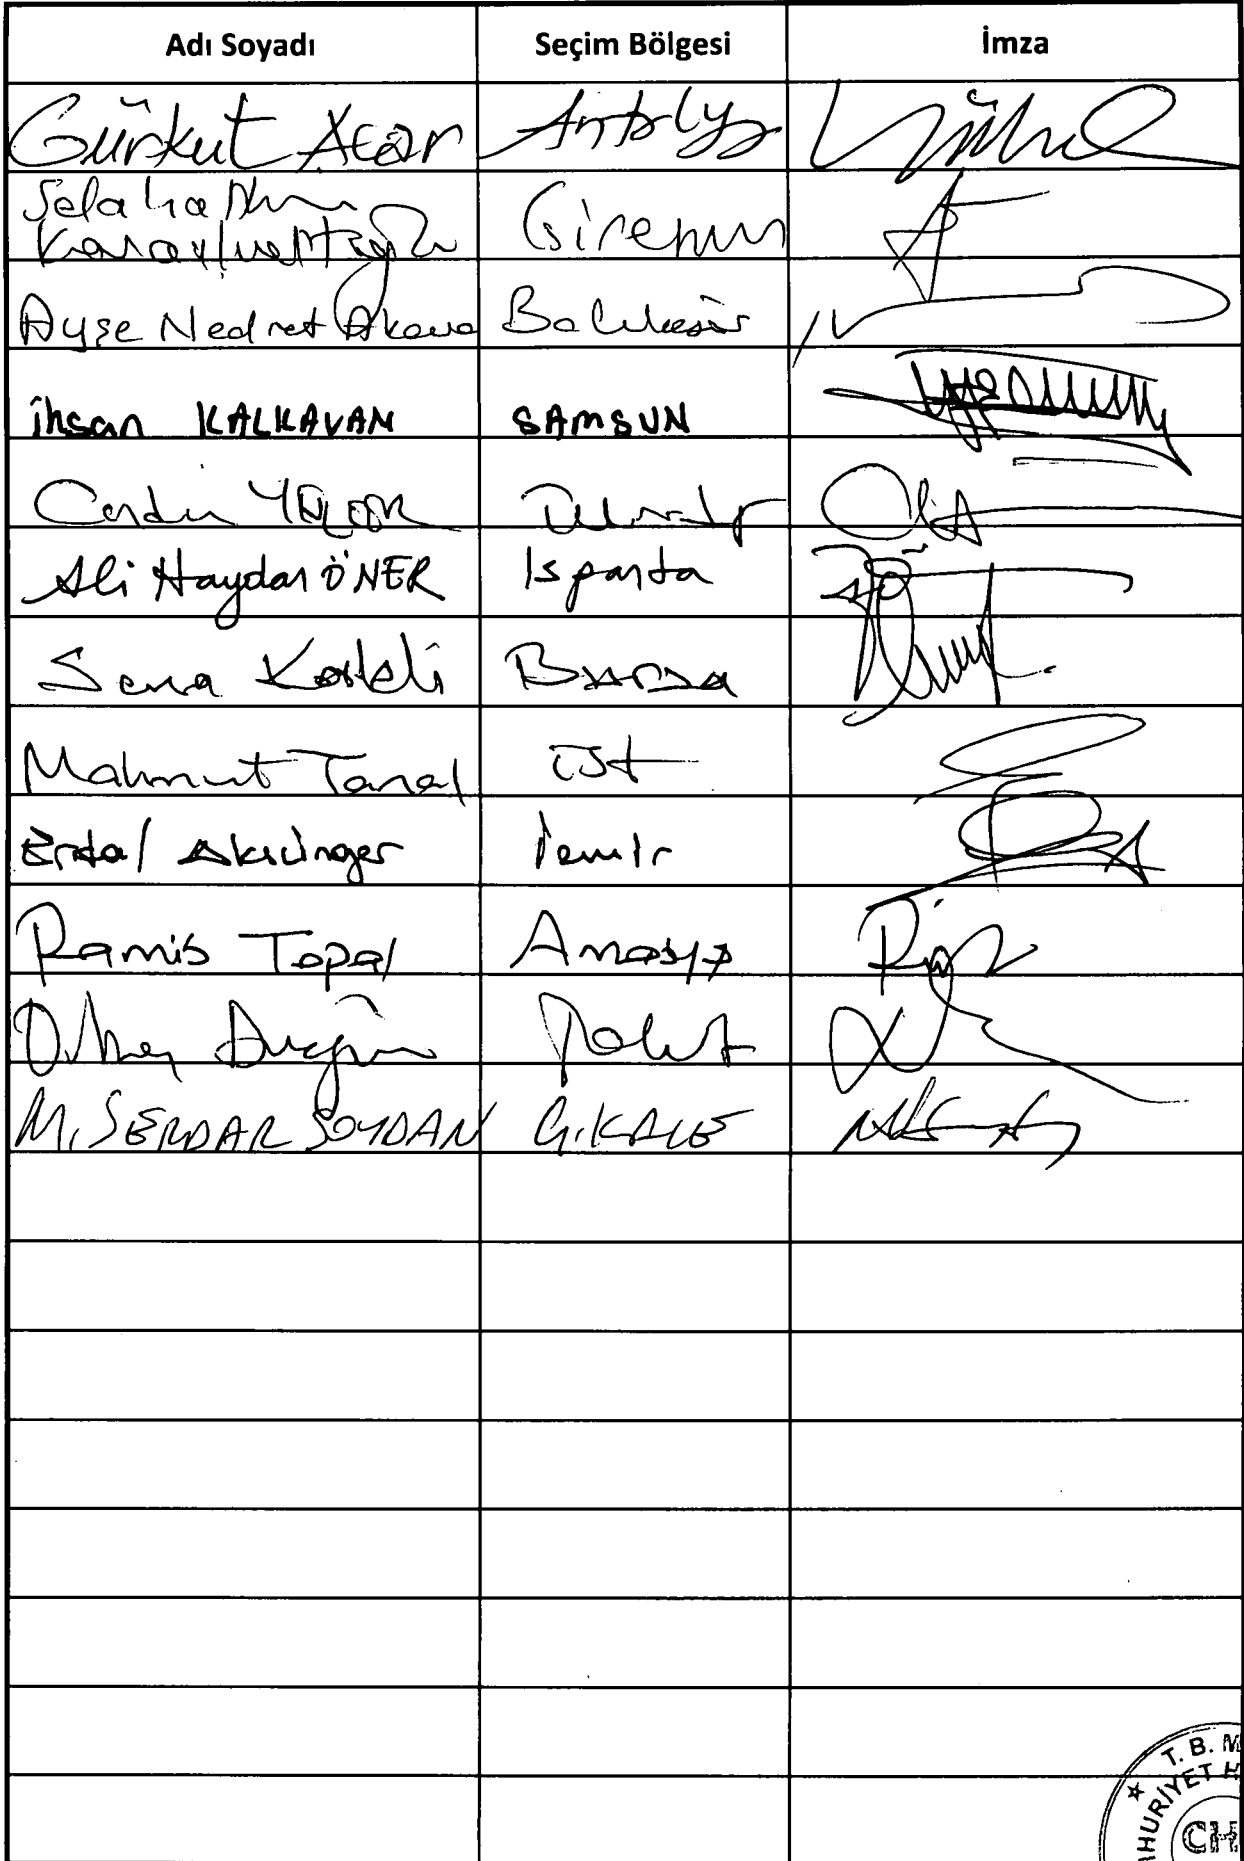 Adı Soyadı Seçim Bölgesi İmza
Gürkut Acar Antalya
Selahattin
Karaahmetoğlu Giresun
Ayşe Nedret Akova Balıkesir
İhsan KALKAVAN SAMSUN
Ali Haydar ÖNER Isparta
Sena Kaleli Bursa
Mahmut Tanal İst
Erdal Aksünger İzmir
Ramis Topal Amasya
Orhan Düzgün Tokat
M. SERDAR SOYDAN Ç.KALE
T. B. M
HURİYET H
CH